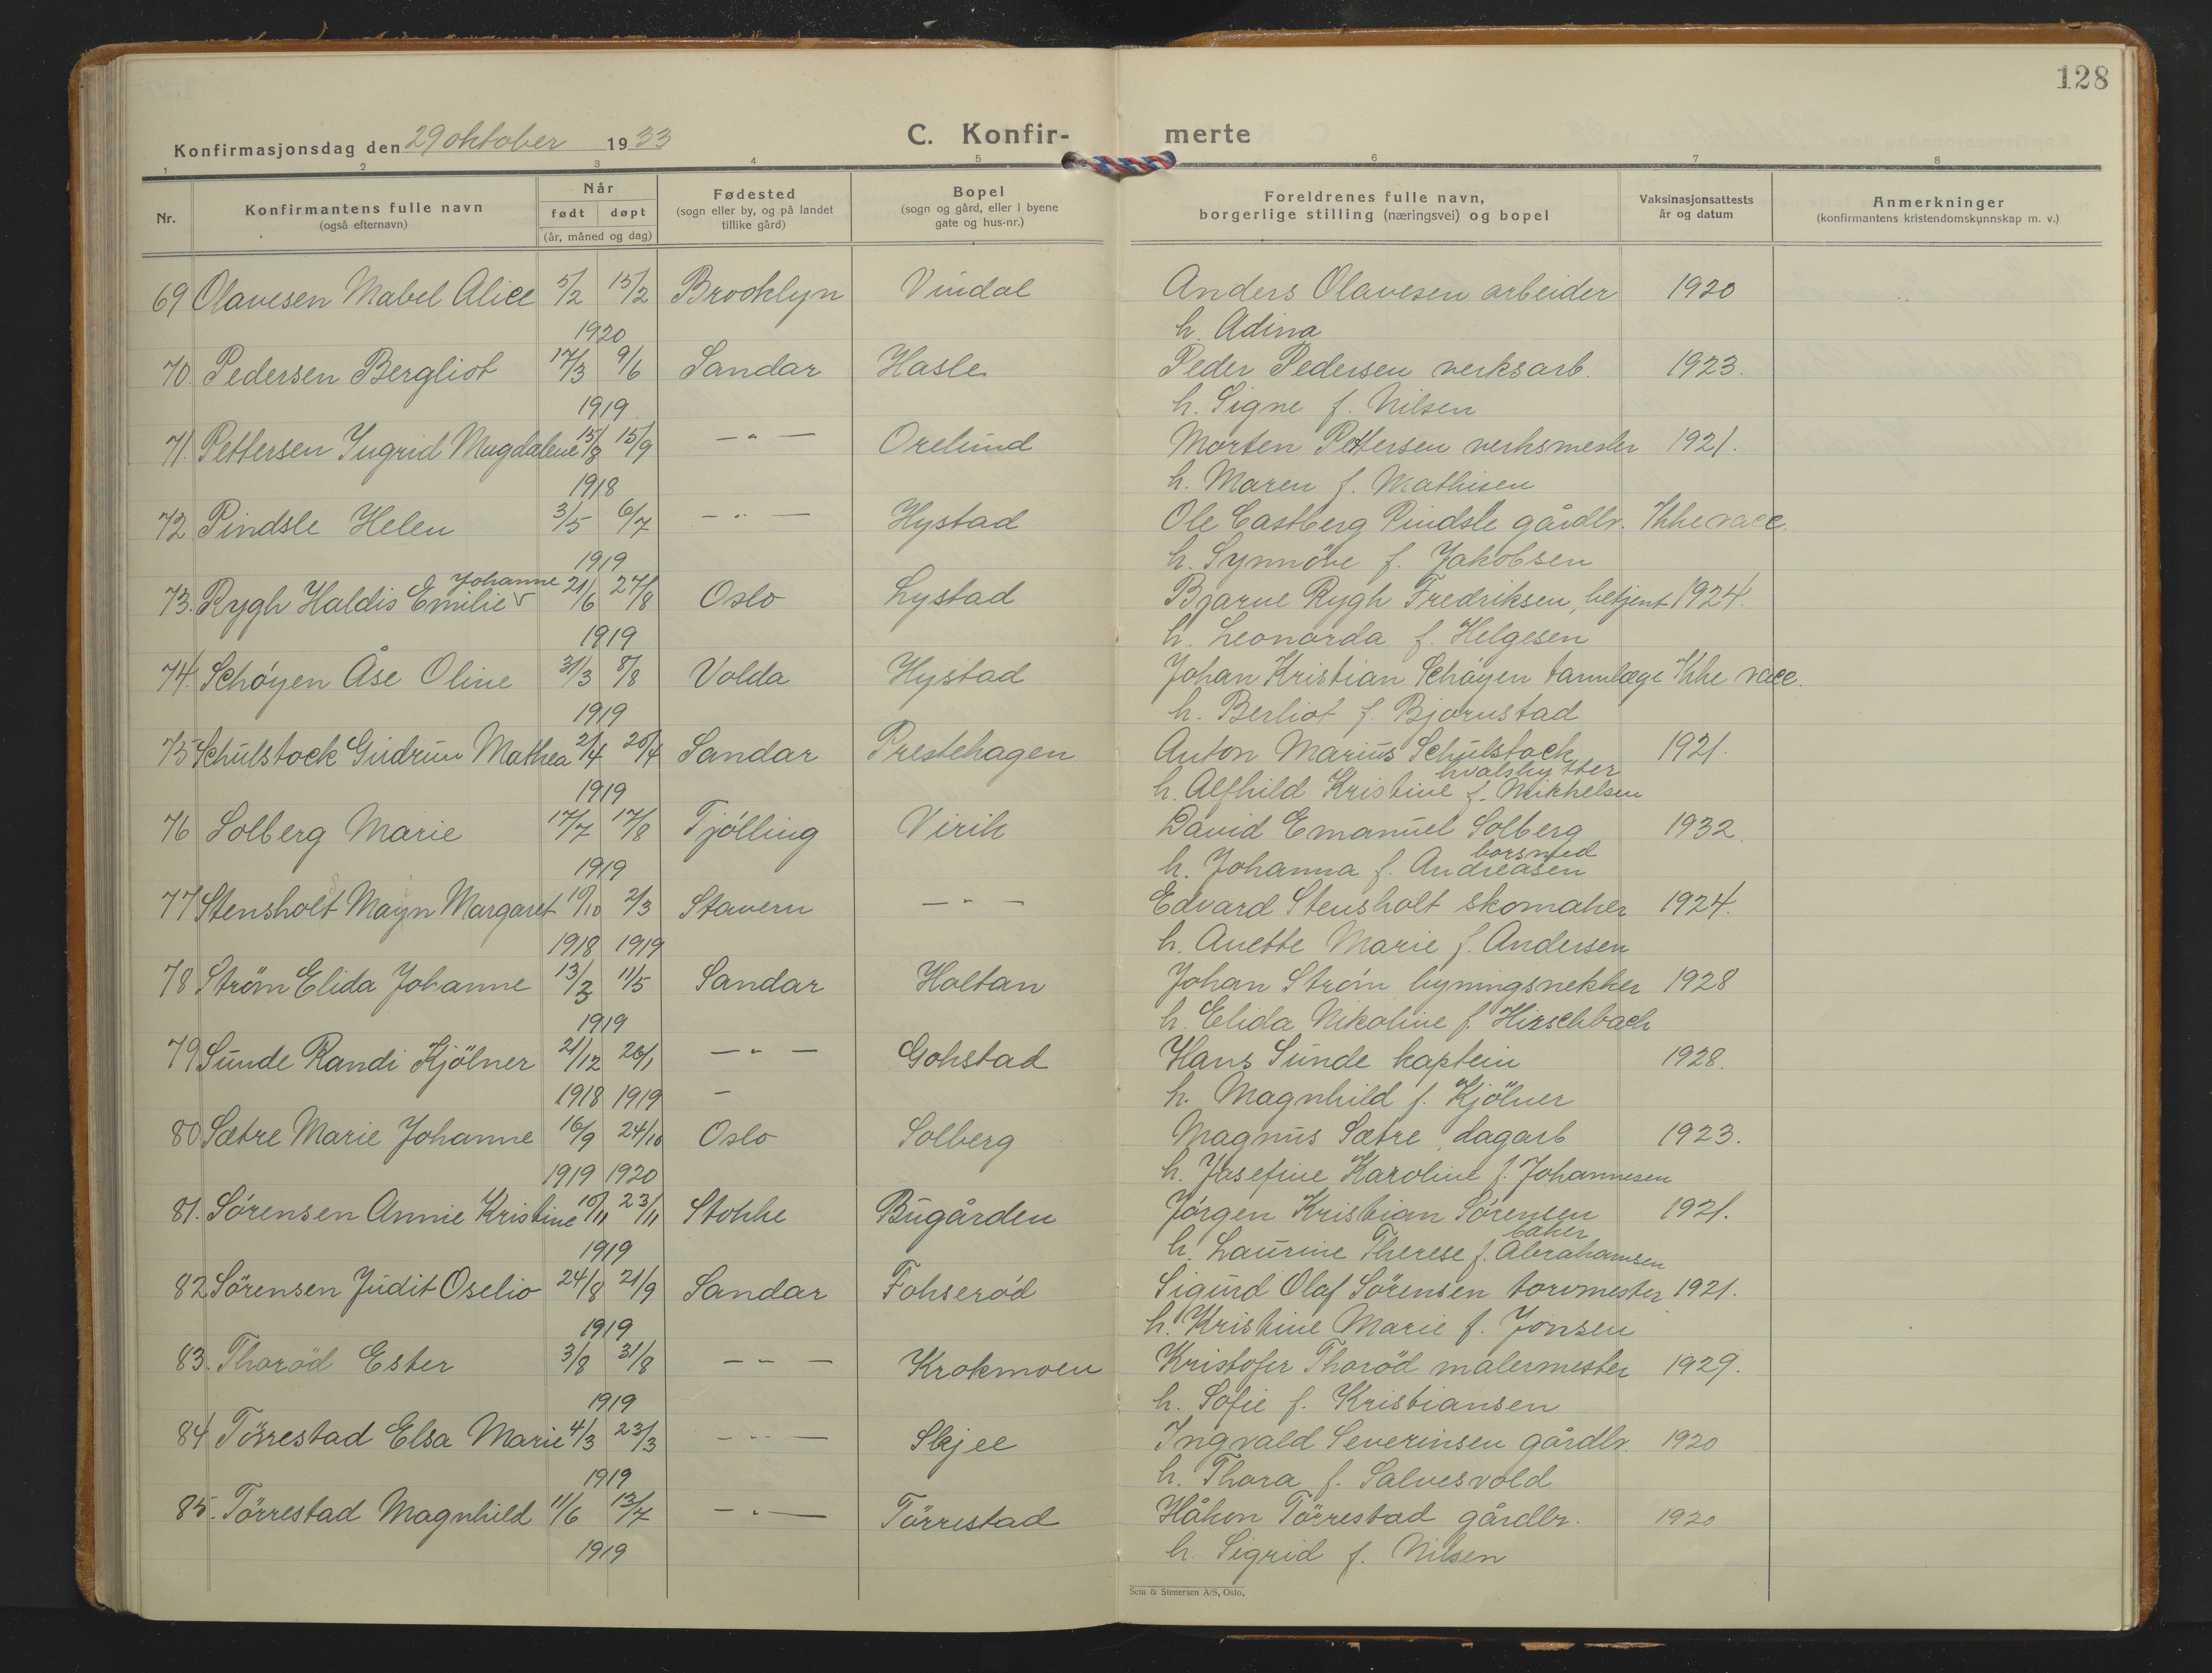 128
Konfirmasjonsdag den 29 oktober 1933
C. Konfir- merte
1 2 3 4 5 6 7 8
Nr.
Konfirmantens fulle navn
(også efternavn)
Når
født døpt
(år, måned og dag)
Fødested
(sogn eller by, og på landet
tillike gård)
Bopel
(sogn og gård, eller i byene
gate og hus-nr.)
Foreldrenes fulle navn,
borgerlige stilling (næringsvei) og bopel
Vaksinasjonsattests
år og datum
Anmerkninger
(konfirmantens kristendomskunnskap m. v.)
69 Olavesen Mabel Alice 5/2 15/2 Brooklyn Vindal Anders Olavesen arbeider 1920
1920 h. Adina
70 Pedersen Bergliot 17/3 9/6 Sandar Hasle Peder Pedersen verksarb. 1923.
1919 h. Signe f. Nilsen
71. Pettersen Ingrid Magdalene 15/8 15/9 — " — Orelund Morten Pettersen verksmester 1921.
1918 h. Maren f. Mathisen
72 Pindsle Helen 3/5 6/7 — " — Hystad Ole Castberg Pindsle gårdbr. Ikke vacc.
1919 h. Synnöve f. Jakobsen
Johanne
73. Rygh Haldis Emilie v 21/6 24/8 Oslo Lystad Bjarne Rygh Fredriksen, betjent 1924.
1919 h. Leonarda f. Helgesen
74. Schöyen Åse Oline 31/3 8/8 Volda Hystad Johan Kristian Schöyen tannlæge Ikke vacc.
1919 h. Berliot f. Bjørnstad
75 Schulstock Gudrun Mathea 2/4 20/4 Sandar Prestehagen Anton Marius Schulstock 1921.
hvalskytter
1919 h. Alfhild Kristine f. Mikkelsen
76 Solberg Marie 17/7 17/8 Tjölling Virik David Emanuel Solberg 1932.
borsmed
1919 h. Johanna f. Andreasen
77 Stensholt Mayn Margaret 10/10 2/3 Stavern — " — Edvard Stensholt skomaker 1924.
1918 1919 h. Anette Marie f. Andersen
78 Strøm Elida Johanne 13/3 11/5 Sandar Haltan Johan Strøm bygningsnekker 1928
1919 h. Elida Nikoline f. Hirschbach
79 Sunde Randi Kjölner 21/12 26/1 — " — Gokstad Hans Sunde kaptein 1928.
1918 1919 — h. Magnhild f. Kjölner
80 Sætre Marie Johanne 16/9 24/10 Oslo Solberg Magnus Sætre dagarb 1923.
1919 1920 h. Josefine Karoline f. Johannesen
81. Sörensen Annie Kristine 10/11 23/11 Stokke Bugården Jörgen Kristian Sörensen 1921.
baker
1919 h. Laurine Therese f. Abrahamsen
82 Sörensen Judit Oselio 24/8 21/9 Sandar Fokserød Sigurd Olaf Sörensen torvmester 1921.
1919 h. Kristine Marie f. Jonsen
83. Thoröd Ester 3/8 31/8 — " — Krokmoen Kristofer Thoröd malermester 1929.
1919 h. Sofie f. Kristiansen
84 Törrestad Elsa Marie 4/3 23/3 — " — Skjee Ingvald Severinsen gårdbr. 1920
1919 h. Thora f. Salvesvold
85. Törrestad Magnhild 11/6 13/7 — " — Törrestad Håkon Törrestad gårdbr. 1920
1919 h. Sigrid f. Nilsen
Sem & Stenersen A/S, Oslo.